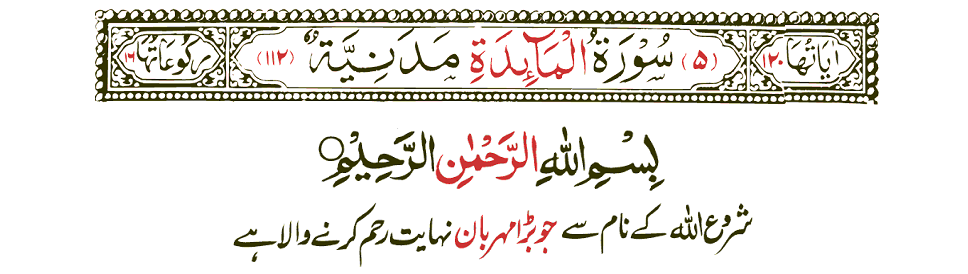 اٰیَاتُهَا ١٢٠ (۵) سُوْرَةُ الْمَآئِدَةِ مَدَنِیَّةٌ (١١٢) رُكُوْعَاتُهَا ١٦
بِسْمِ اللّٰهِ الرَّحْمٰنِ الرَّحِیْمِ○
شروع اللہ کے نام سے جو بڑا مہربان نہایت رحم کرنے والا ہے